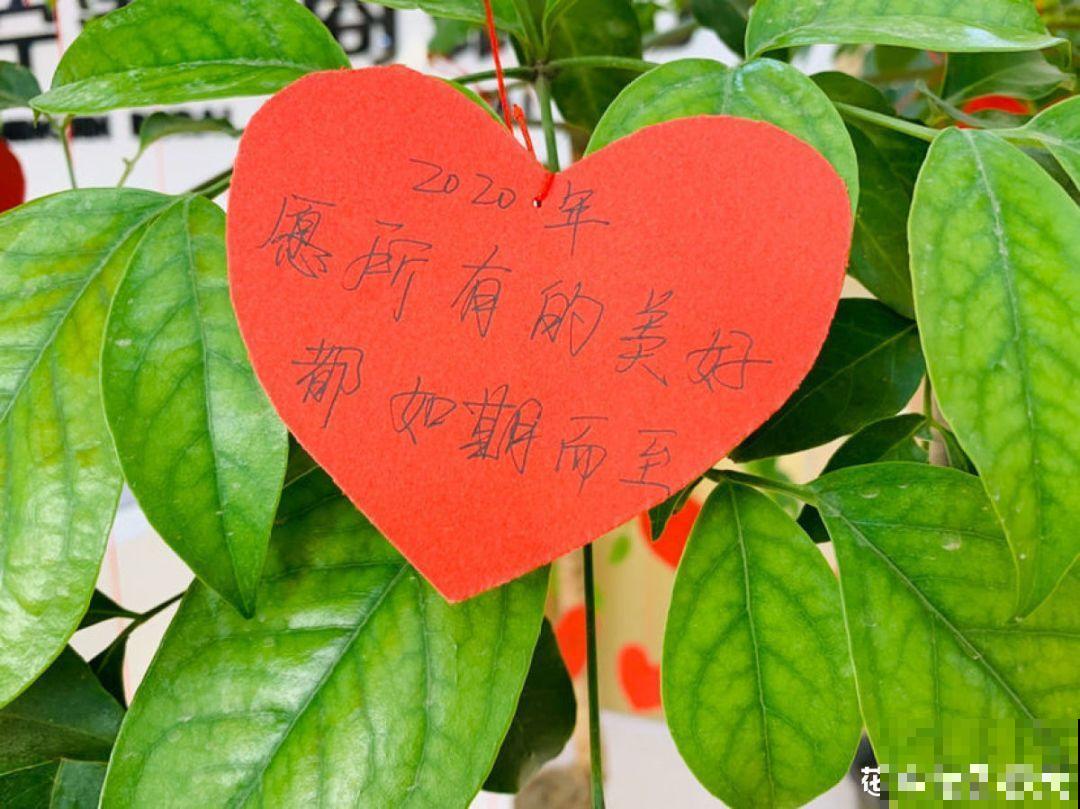 2020年
愿所有的美好
都如期而至
花